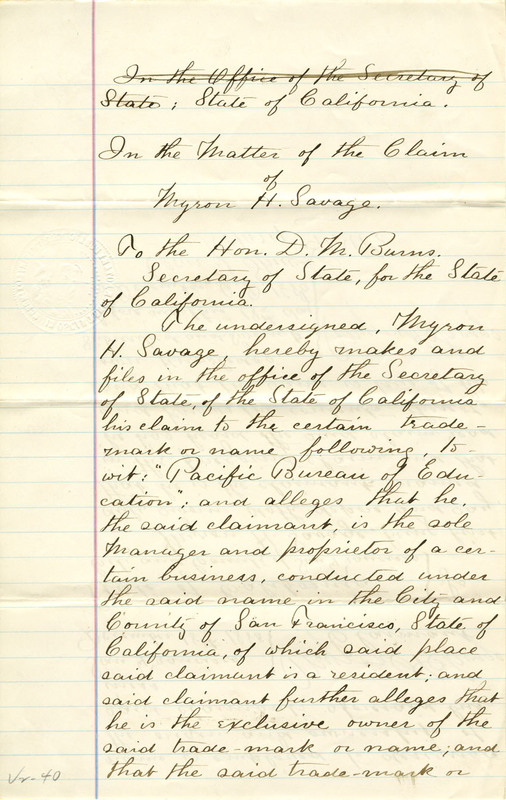 In the Office of the Secretary of
State; State of California.
In the Matter of the Claim
of
Myron H. Savage.
To the Hon. D. M. Burns.
Secretary of State, for the State
of California.
The undersigned, Myron
H. Savage, hereby makes and
files in the office of the Secretary
of State, of the State of California
his claim to the certain trade-
mark or name following, to-
wit: "Pacific Bureau of Edu-
cation"; and alleges that he,
the said claimant, is the sole
Manager and proprietor of a cer-
tain business, conducted under
the said name in the City and
County of San Francisco, State of
California, of which said place
said claimant is a resident; and
said claimant further alleges that
he is the exclusive owner of the
said trade-mark or name; and
that the said trade-mark or